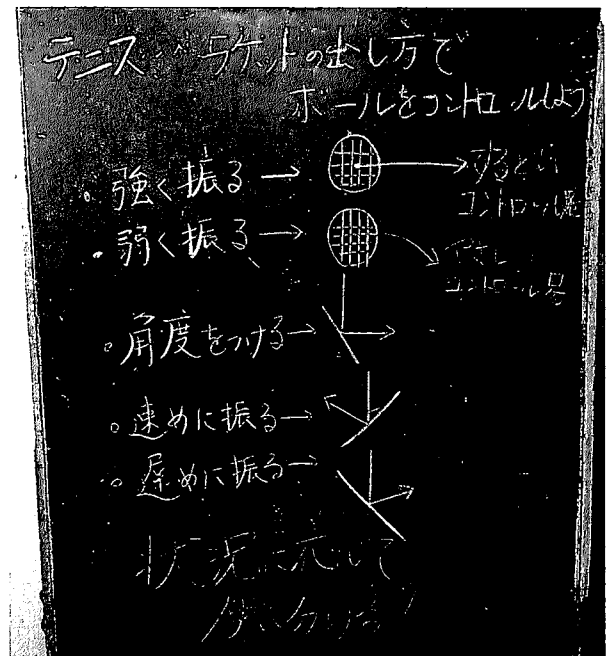 テニス ラケットの出し方で
ボールをコントロールしよう
・強く振る→
するどい
コントロール
・弱く振る→
コントロール
・角度をつける→
・速めに振る→
・遅めに振る→
状況に応じて
使い分ける